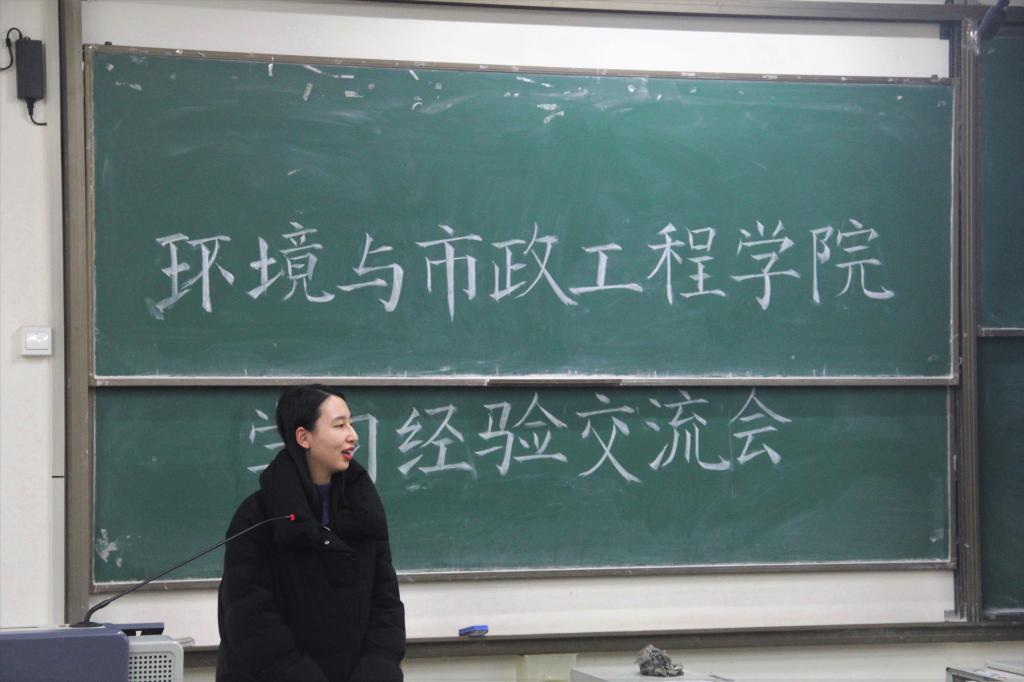 环境与市政工程学院
学习经验交流会